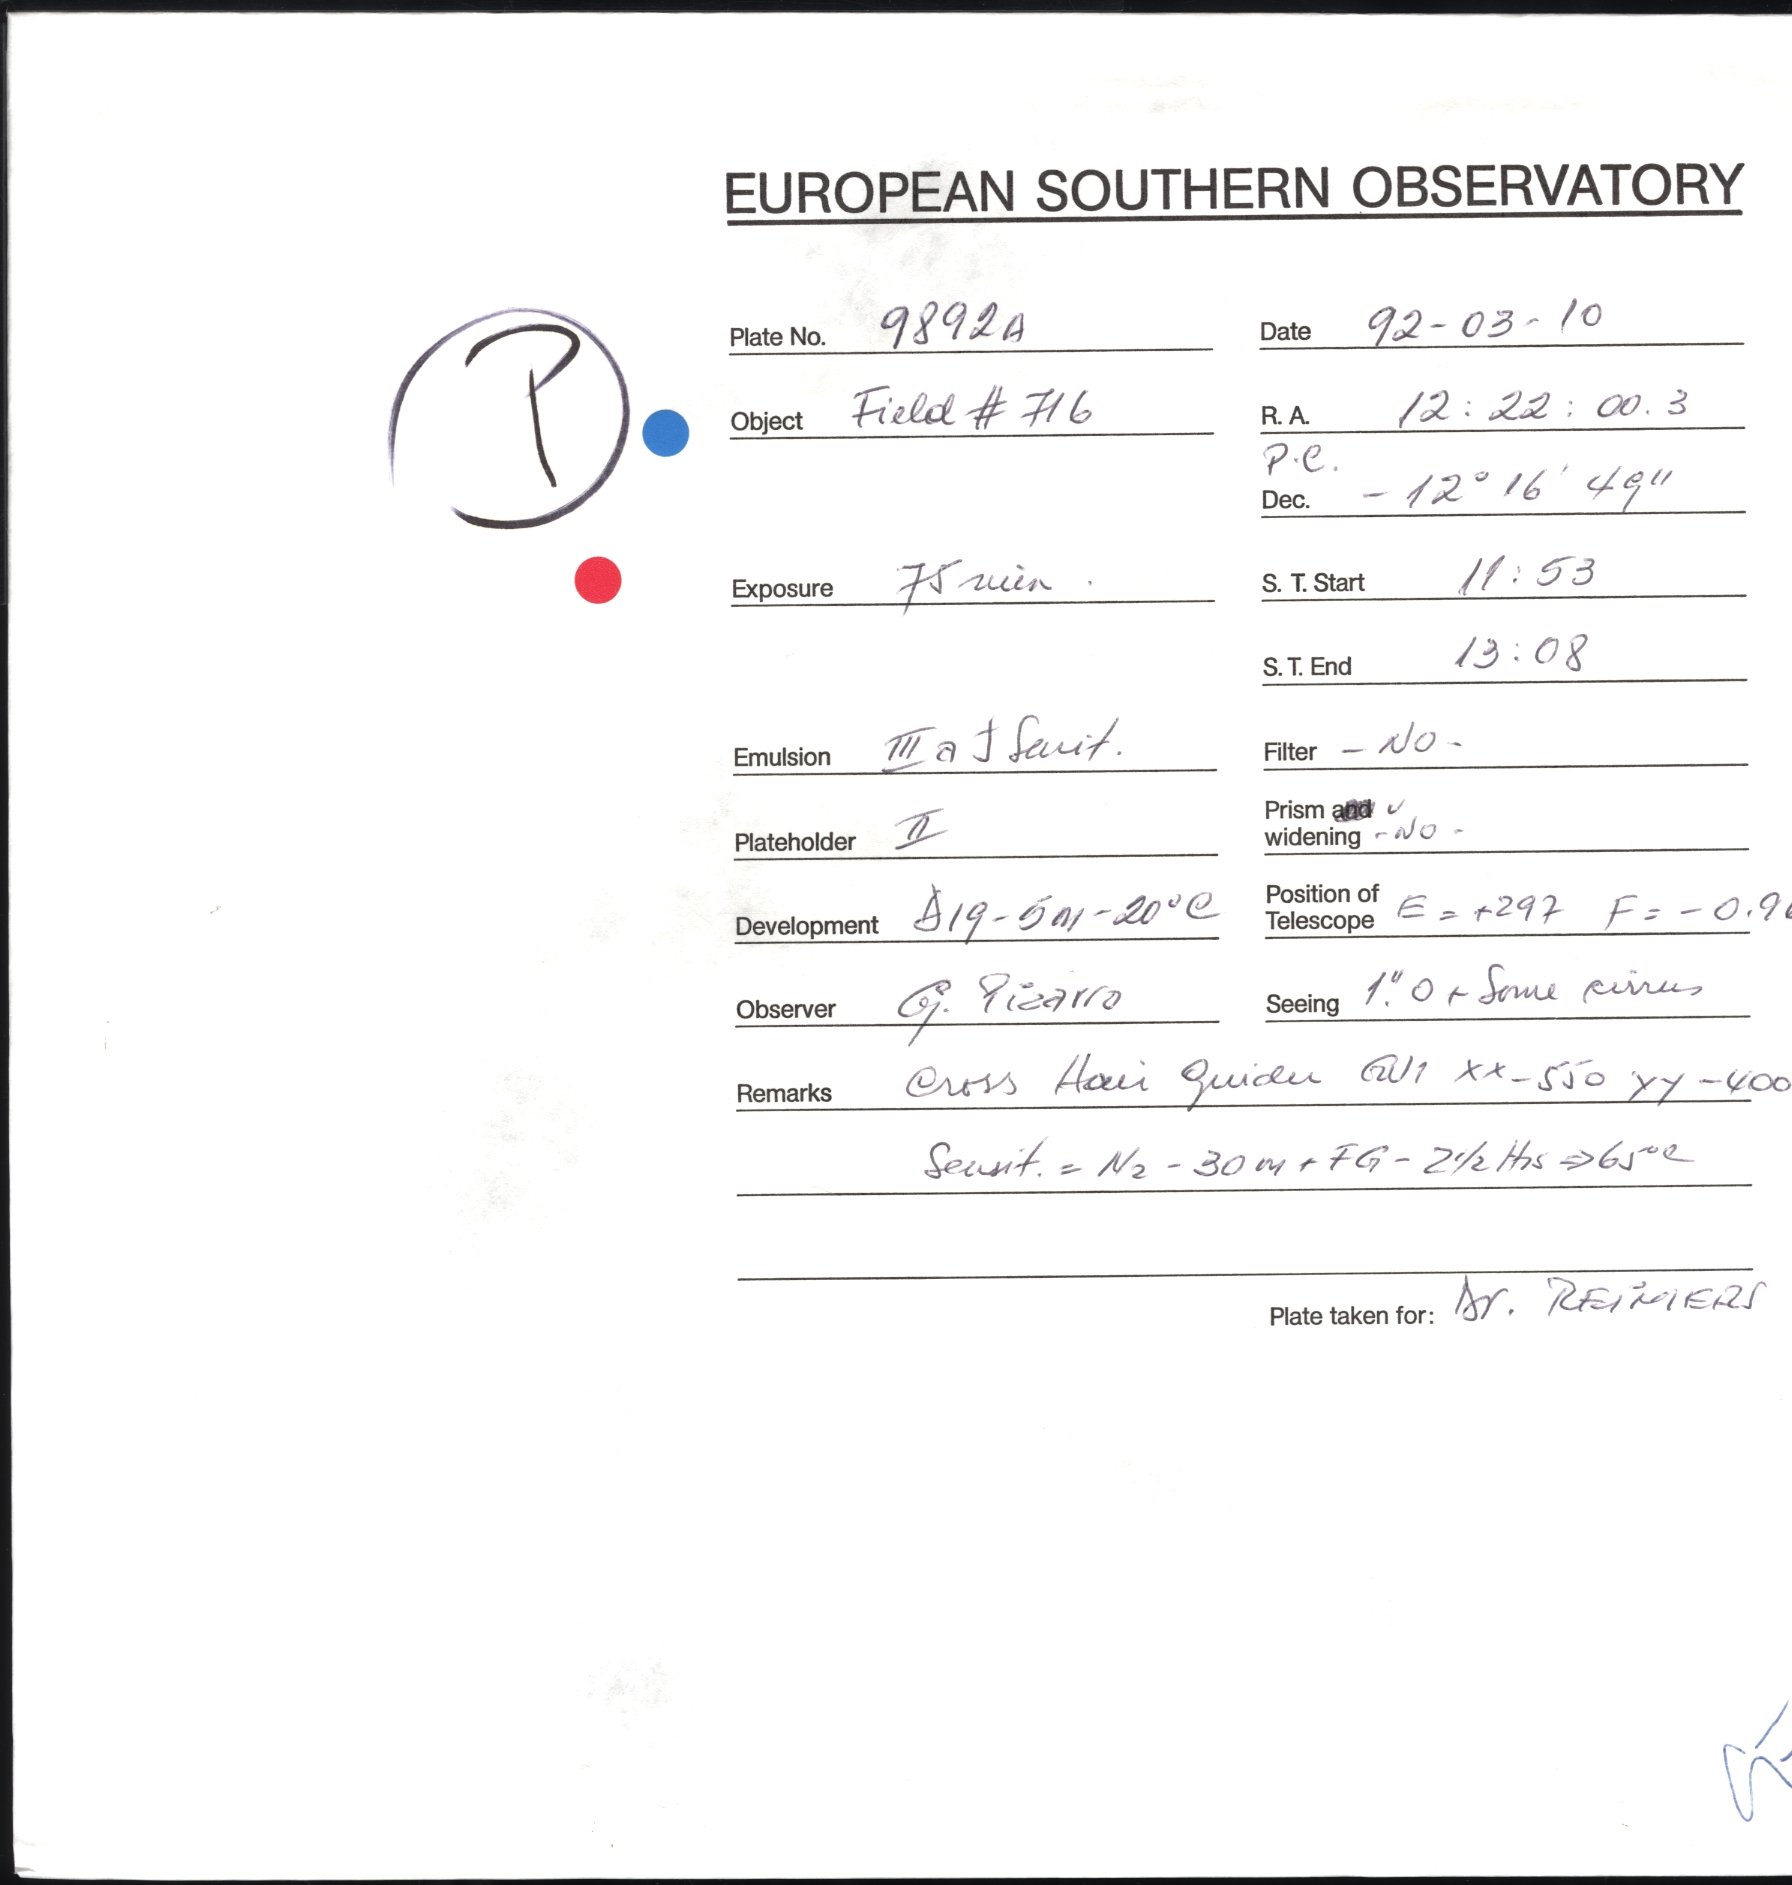 EUROPEAN SOUTHERN OBSERVATORY
P
Plate No. 9892A Date 92-03-10
Object Field # 716 R. A. 12 : 22 : 00.3
P.C.
Dec. - 12° 16' 49"
Exposure 75 min. S. T. Start 11:53
S. T. End 13:08
Emulsion III a J Sensit. Filter - NO -
Prism and
Plateholder II widening - NO -
Position of
Development D19-5m-20°C Telescope E = +297 F = -0.9
Observer G. Pizarro Seeing 1".0 + Some cirrus
Remarks Cross Hair Guider xx-550 yy-400
Sensit. = N2 - 30m + FG - 2 1/2 Hrs => 65°C
Plate taken for: Dr. REIMERS